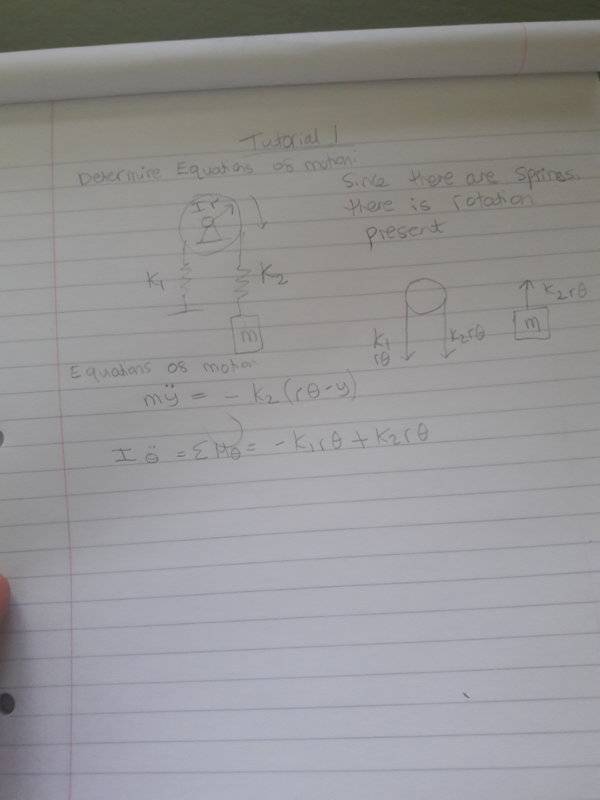 Tutorial 1
Determine Equations of motion.
Since there are springs.
there is rotation
present
I r
K₁
K₂
m
K₁
rθ
K₂rθ
K₂rθ
m
Equations of motion
mÿ = - K₂(rθ-y)
I θ̈ = Σ Mθ = -K₁rθ + K₂rθ